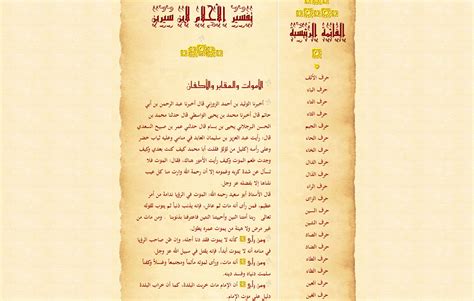 تفسير الأحلام لابن سيرين
الأموات والمقابر والأكفان
أخبرنا الوليد بن أحمد الزوزني قال أخبرنا عبد الرحمن بن أبي
حاتم قال أخبرنا محمد بن يحيى الواسطي قال حدثنا محمد بن
الحسن البرجلاني يحيى بن بسام قال حدثني عمر بن صبيح السعدي
قال، رأيت عبد العزيز بن سليمان العابد في منامي وعليه ثياب خضر
وعلى رأسه إكليل من لؤلؤ فقلت أبا محمد كيف كنت بعدي وكيف
وجدت طعم الموت وكيف رأيت الأمور هناك، فقال، أما الموت فلا
تسأل عن شدة كربه وغمومه إلا أن رحمة الله وارت منا كل عيب
نلناها إلا بفضله عز وجل
قال الأستاذ أبو سعيد رحمه الله، الموت في الرؤيا ندامة من أمر
عظيم، فمن رأى أنه مات ثم عاش، فإنه يذنب ذنباً ثم يتوب لقوله
تعالى ربنا أمتنا اثنتين وأحييتنا اثنتين فاعترفنا بذنوبنا ومن مات من
غير مرض ولا هيئة من يموت عمره يطول
ومن رأى كأنه لا يموت فقد دنا أجله، وإن ظن صاحب الرؤيا
في منامه أنه لا يموت أبداً، فإنه يقتل في سبيل الله عز وجل
ومن رأى أنه مات، ورأى لموته مأتماً ومجتمعاً وغسلاً وكفناً
سلمت دنياه وفسد دينه
ومن رأى أن الإمام مات خربت البلدة، كما أن خراب البلدة
دليل على موت الإمام
القائمة الرئيسية
حرف الألف
حرف الباء
حرف التاء
حرف الثاء
حرف الجيم
حرف الحاء
حرف الخاء
حرف الدال
حرف الذال
حرف الراء
حرف الزاي
حرف السين
حرف الشين
حرف الصاد
حرف الضاد
حرف الطاء
حرف الظاء
حرف العين
حرف الغين